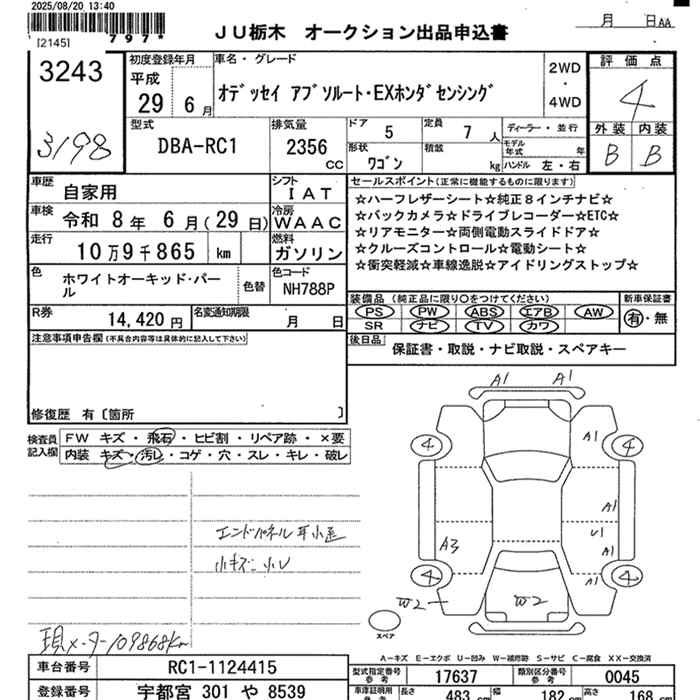 2025/08/20 13:40
[2145]
797*
JU栃木 オークション出品申込書
月 日AA
3243
3198
初度登録年月
平成
29 6月
車名・グレード
オデッセイ アブソルート・EXホンダセンシング
2WD
・
4WD
評価点
4
外装 内装
B B
型式
DBA-RC1
排気量
2356
CC
ドア 5
定員 7人
形状 ワゴン
積載 kg
ディーラー・並行
モデル年式 年
ハンドル 左・右
車歴 自家用
シフト IAT
車検 令和 8年 6月(29日)
冷房 WAAC
走行 10万9千865 km
燃料 ガソリン
色 ホワイトオーキッド・パール
色替
色コード NH788P
R券 14,420円
名変通知期限 月 日
セールスポイント(正常に機能するものに限ります)
☆ハーフレザーシート☆純正8インチナビ☆
☆バックカメラ☆ドライブレコーダー☆ETC☆
☆リアモニター☆両側電動スライドドア☆
☆クルーズコントロール☆電動シート☆
☆衝突軽減☆車線逸脱☆アイドリングストップ☆
装備品(純正品に限り○をつけてください)
PS PW ABS エアB AW
SR ナビ TV カワ
新車保証書
有・無
後日品
保証書・取説・ナビ取説・スペアキー
注意事項申告欄(不具合内容等は具体的に記入して下さい)
修復歴 有〔箇所 〕
検査員記入欄
FW キズ・飛石・ヒビ割・リペア跡・×要
内装 キズ・汚レ・コゲ・穴・スレ・キレ・破レ
小キズ 小U
現メーター109868km
A1 A1
4 4
A1
A1
U1
A3
A1
4 4
A1
W2
W2
スペア
A-キズ E-エクボ U-凹み W-補修跡 S-サビ C-腐食 XX-交換済
車台番号 RC1-1124415
登録番号 宇都宮 301 や 8539
型式指定番号 参考 17637
類別区分番号 参考 0045
車庫証明用 参考 長さ 483 cm 幅 182 cm 高さ 168 cm